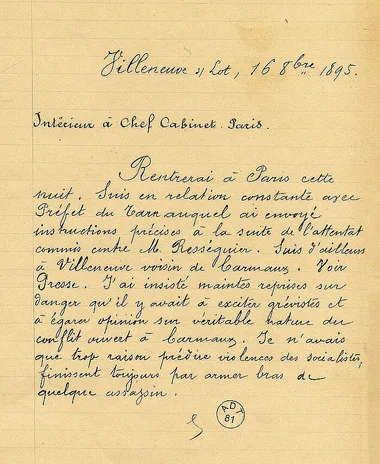 Villeneuve s/ Lot, 16 8bre 1895.
Intérieur à Chef Cabinet. Paris.
Rentrerai à Paris cette
nuit. Suis en relation constante avec
Préfet du Tarn auquel ai envoyé
instructions précises à la suite de l'attentat
commis contre M. Rességuier. Suis d'ailleurs
à Villeneuve voisin de Carmaux. Voir
Presse. J'ai insisté maintes reprises sur
danger qu'il y avait à exciter grévistes et
à égarer opinion sur véritable nature du
conflit ouvert à Carmaux. Je n'avais
que trop raison prédire violences des socialistes,
finissent toujours par armer bras de
quelque assassin.
ADT
81